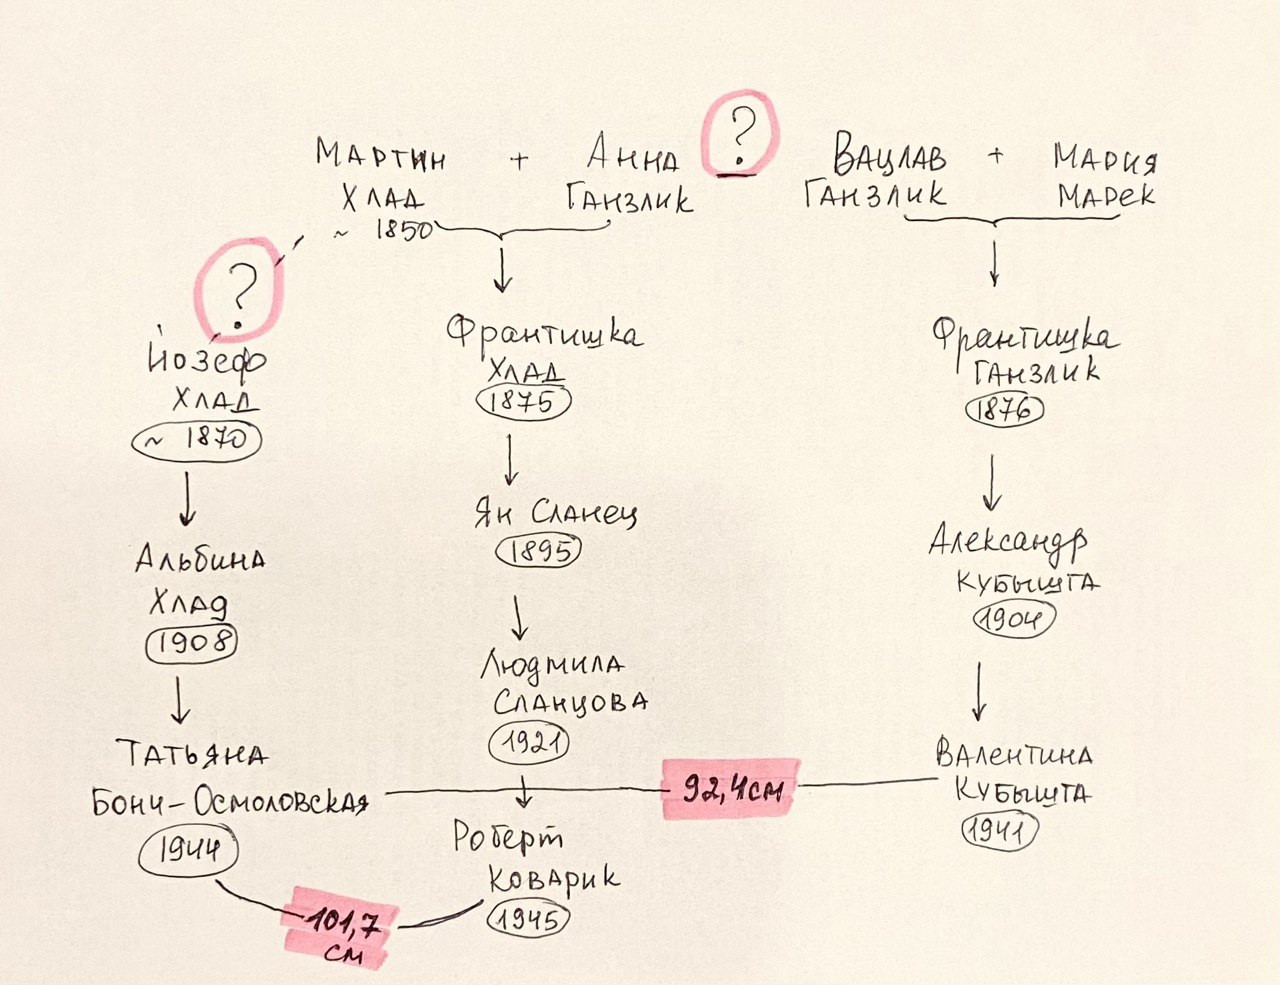 ?
Мартин + Анна
Хлад Ганзлик
~ 1850
Вацлав + Мария
Ганзлик Марек
?
Йозеф
Хлад
~ 1870
Франтишка
Хлад
1875
Франтишка
Ганзлик
1876
Ян Сланец
1895
Альбина
Хлад
1908
Александр
Кубышта
1904
Людмила
Сланцова
1921
Татьяна
Бонч-Осмоловская
1944
92,4см
Валентина
Кубышта
1941
Роберт
Коварик
1945
101,7
см